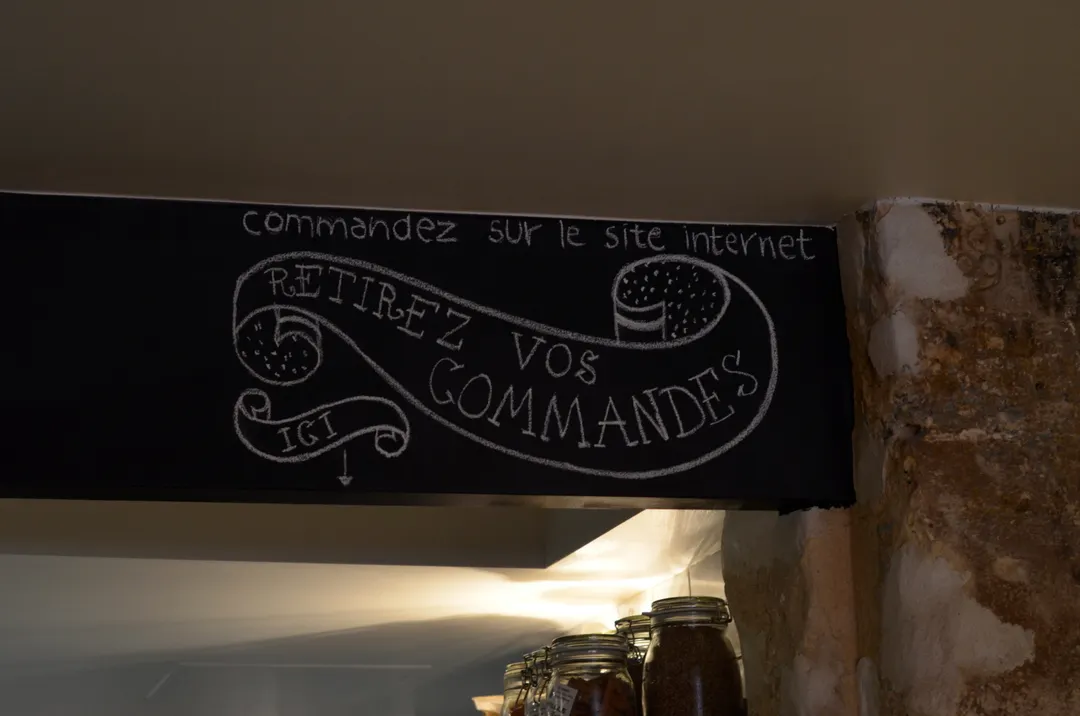 commandez sur le site internet
RETIREZ VOS
COMMANDES
ICI